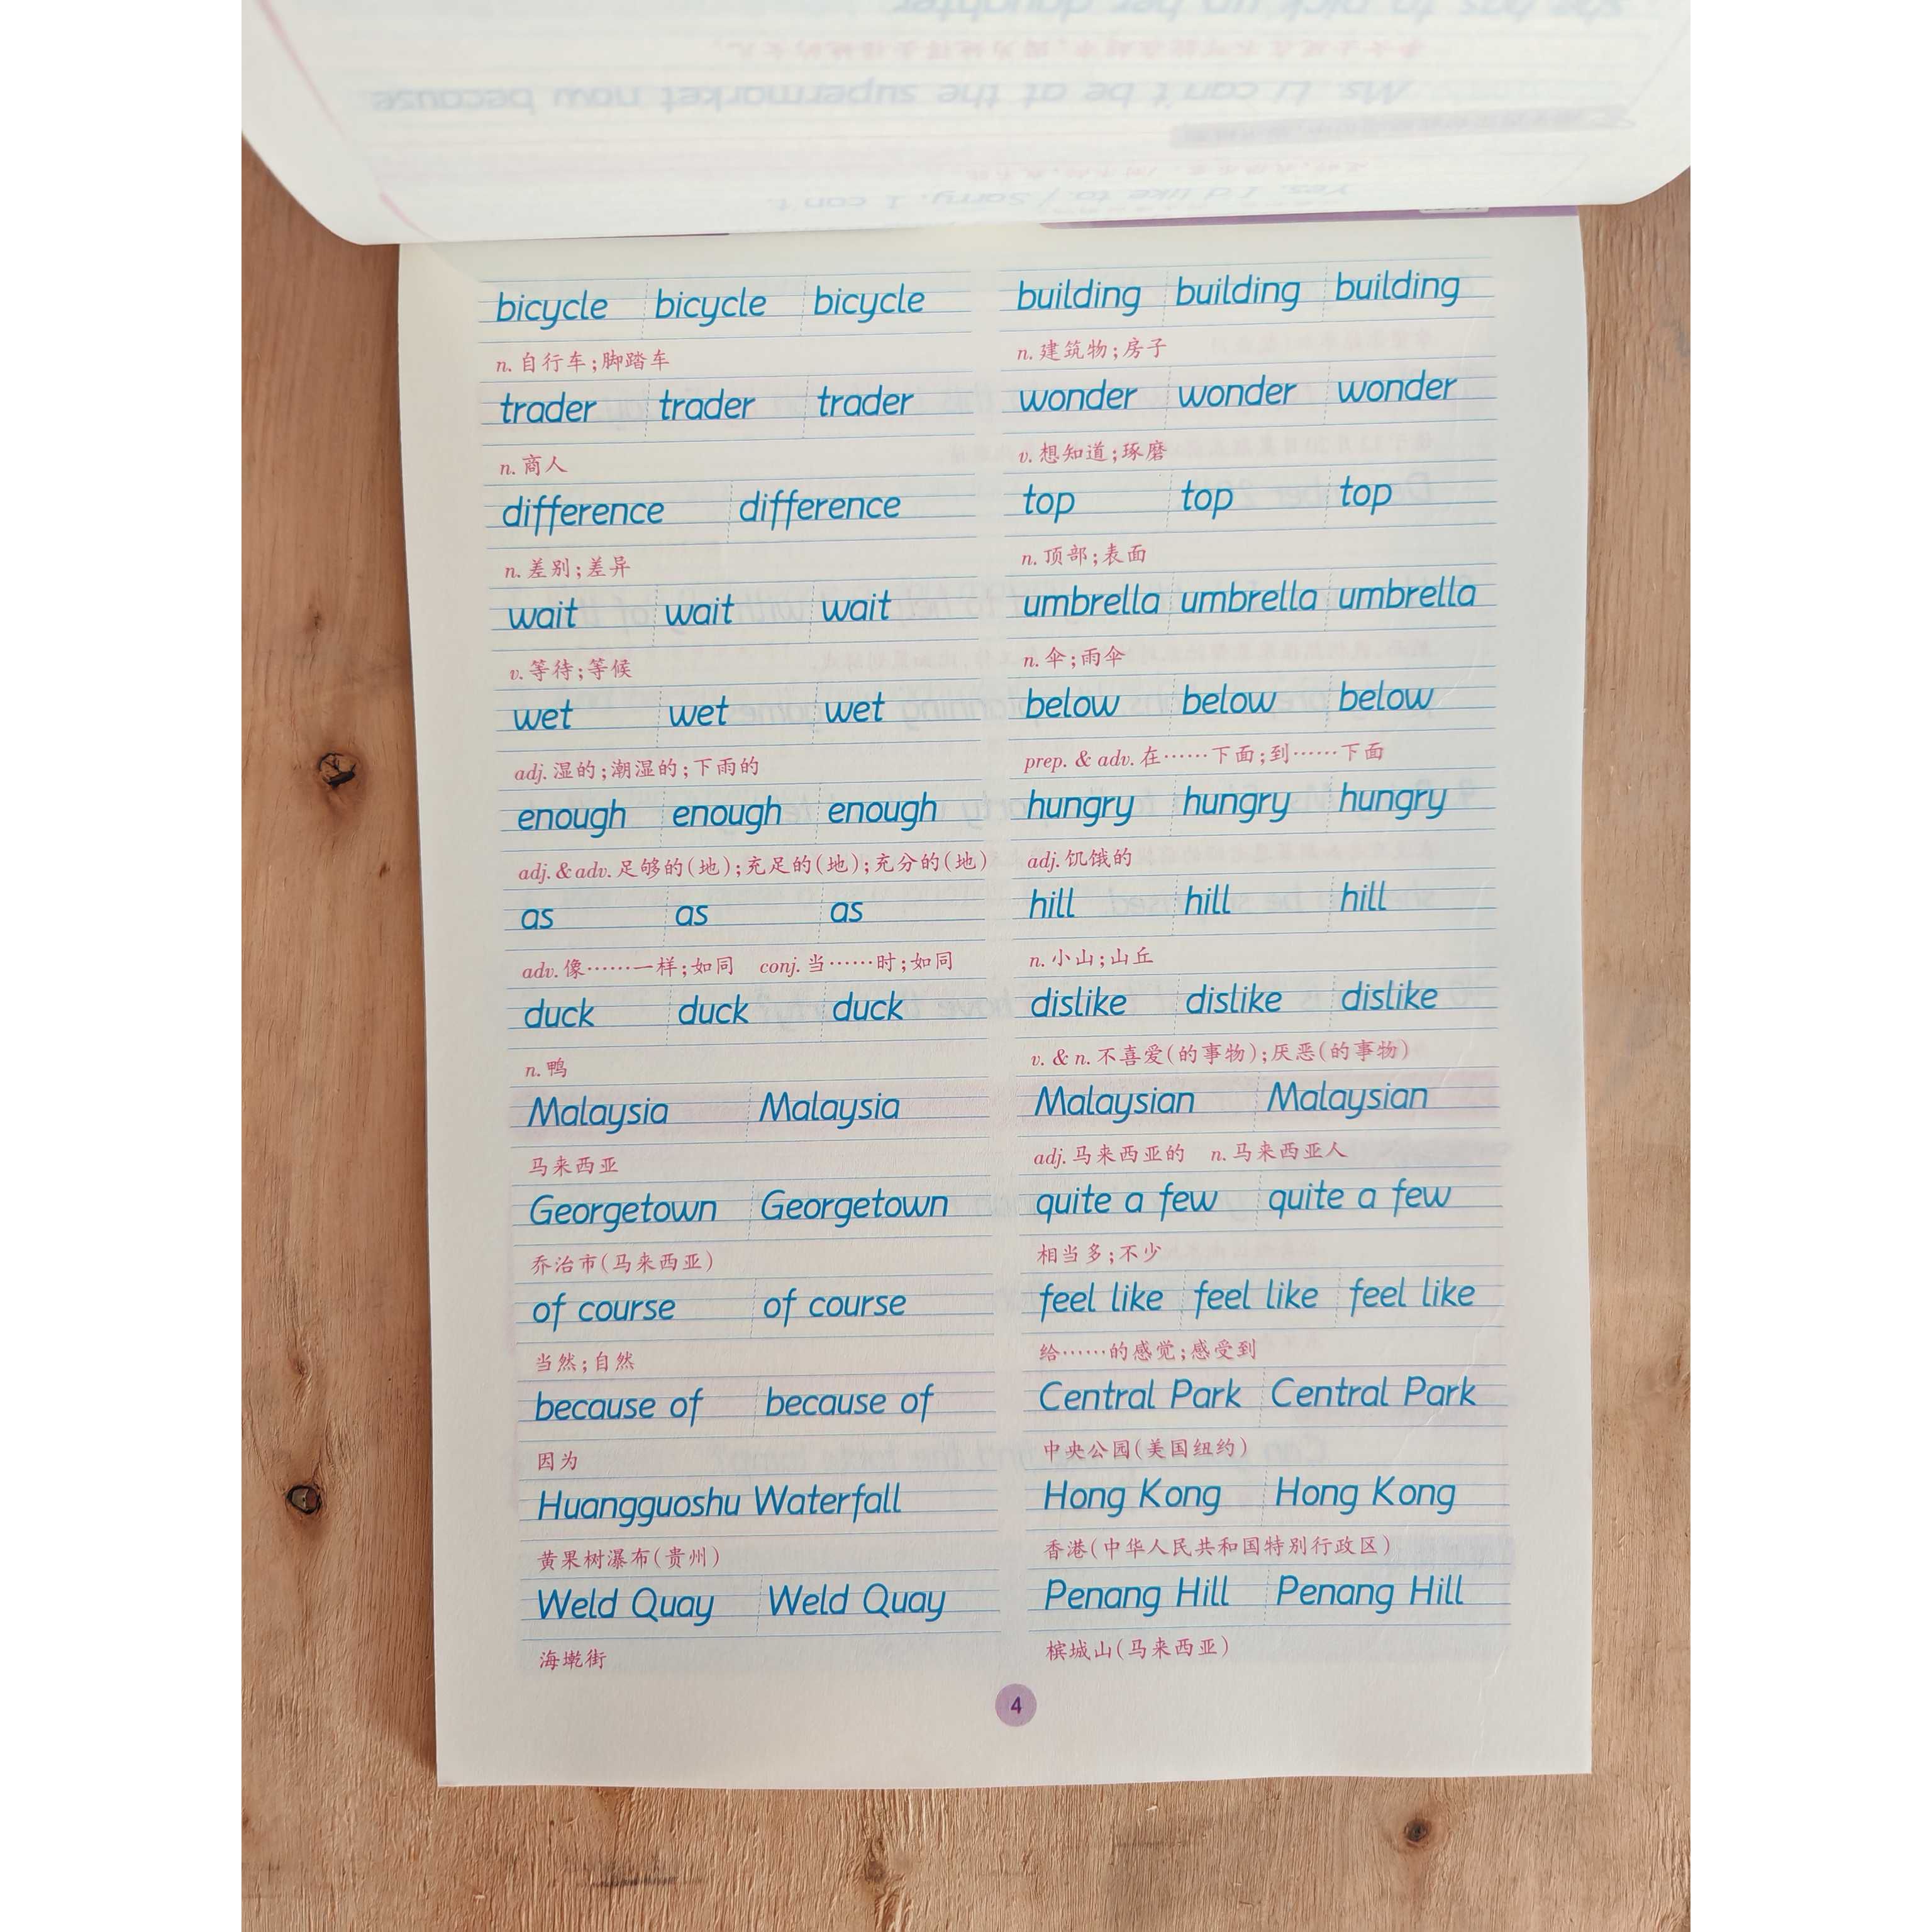 bicycle bicycle bicycle
n.自行车;脚踏车
trader trader trader
n.商人
difference difference
n.差别;差异
wait wait wait
v.等待;等候
wet wet wet
adj.湿的;潮湿的;下雨的
enough enough enough
adj.&adv.足够的(地);充足的(地);充分的(地)
as as as
adv.像……一样;如同 conj.当……时;如同
duck duck duck
n.鸭
Malaysia Malaysia
马来西亚
Georgetown Georgetown
乔治市(马来西亚)
of course of course
当然;自然
because of because of
因为
Huangguoshu Waterfall
黄果树瀑布(贵州)
Weld Quay Weld Quay
海墘街
building building building
n.建筑物;房子
wonder wonder wonder
v.想知道;琢磨
top top top
n.顶部;表面
umbrella umbrella umbrella
n.伞;雨伞
below below below
prep. & adv.在……下面;到……下面
hungry hungry hungry
adj.饥饿的
hill hill hill
n.小山;山丘
dislike dislike dislike
v. & n.不喜爱(的事物);厌恶(的事物)
Malaysian Malaysian
adj.马来西亚的 n.马来西亚人
quite a few quite a few
相当多;不少
feel like feel like feel like
给……的感觉;感受到
Central Park Central Park
中央公园(美国纽约)
Hong Kong Hong Kong
香港(中华人民共和国特别行政区)
Penang Hill Penang Hill
槟城山(马来西亚)
4